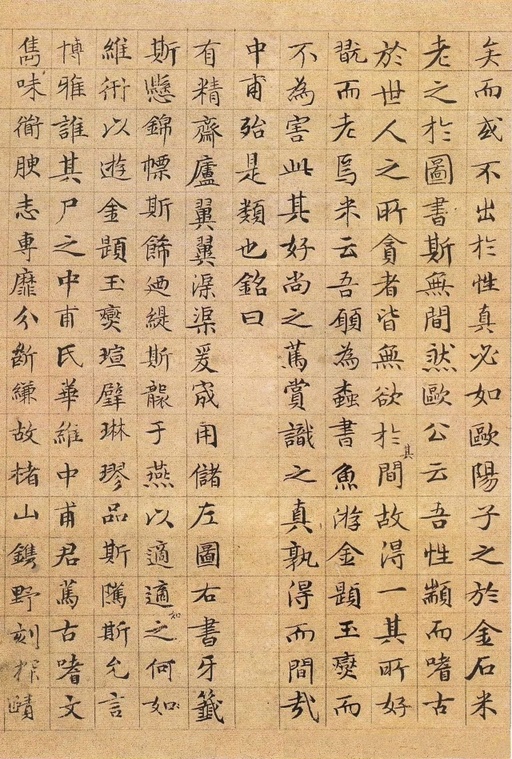 矣而或不出於性真必如歐陽子之於金石米
老之於圖書斯無間然歐公云吾性顓而嗜古
於世人之所貪者皆無欲於其間故得一其所好
翫而老焉米云吾願為蠹書魚游金題玉躞而
不為害此其好尚之篤賞識之真孰得而間哉
中甫殆是類也銘曰
有精齋廬翼翼渠渠爰宬用儲左圖右書牙籤
斯懸錦幖斯飾迺緹斯襲于燕以適適如之何如
維衎以遊金題玉躞瑄璧琳璆品斯隲斯允言
博雅誰其尸之中甫氏華維中甫君篤古嗜文
雋味衜腴志專靡分斷縑故楮山鐫野刻探賾